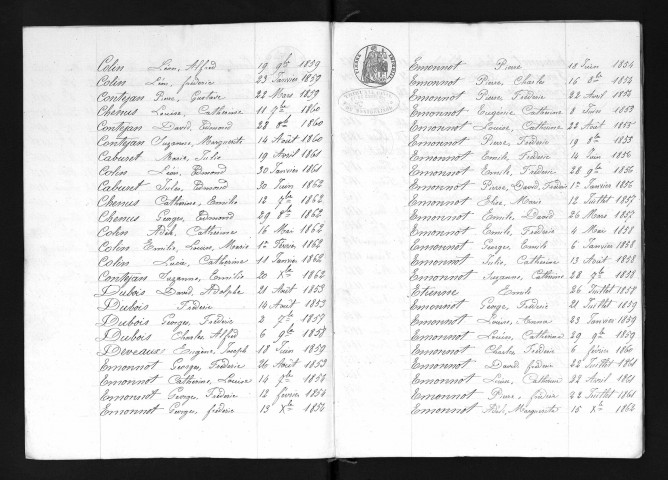 Colin Léon, Alfred 19 9bre 1859
Colin Léon, frédéric 23 Janvier 1859
Contejan Pierre, Gustave 22 Mars 1859
Chenus Louise, Catherine 11 9bre 1860
Contejan David, Edmond 28 8bre 1860
Contejan Suzanne, Marguerite 14 Août 1860
Caburet Marie, Julie 19 Avril 1861
Colin Léon, Edmond 30 Janvier 1861
Caburet Jules, Edmond 30 Juin 1862
Chenus Catherine, Emilie 12 7bre 1862
Chenus Georges, Edmond 29 8bre 1862
Colin Adèle, Catherine 16 Mai 1862
Colin Emilie, Louise, Marie 1er Février 1862
Colin Lucie, Catherine 11 Janvier 1862
Contejan Suzanne, Emilie 20 Xbre 1862
Dubois David, Adolphe 21 Août 1853
Dubois Frédéric 14 Août 1853
Dubois Georges, Frédéric 2 7bre 1857
Dubois Charles Alfred 6 9bre 1857
Deveaux Eugène, Joseph 18 Juin 1859
Emonnot Georges, Frédéric 26 Août 1853
Emonnot Catherine, Louise 14 7bre 1854
Emonnot Georges, Frédéric 12 février 1854
Emonnot Georges, frédéric 13 Xbre 1854
Emonnot Pierre 18 Juin 1854
Emonnot Pierre, Charles 16 8bre 1854
Emonnot Pierre Frédéric 22 Avril 1854
Emonnot Eugénie Catherine 8 Juin 1853
Emonnot Louise, Catherine 28 Août 1855
Emonnot Pierre, Frédéric 19 8bre 1855
Emonnot Emile, Frédéric 14 Juin 1856
Emonnot Emile, Frédéric 28 9bre 1856
Emonnot Pierre, David, Frédéric 1er Janvier 1856
Emonnot Elise, Marie 12 Juillet 1857
Emonnot Emile, David 26 Mars 1857
Emonnot Emile, Frédéric 4 Mai 1858
Emonnot George Emile 6 Janvier 1858
Emonnot Julie, Catherine 13 Août 1858
Emonnot Suzanne, Catherine 28 7bre 1858
Etienne Emile 26 Juillet 1859
Emonnot George Frédéric 21 Juillet 1859
Emonnot Louise, Anna 23 Janvier 1859
Emonnot Louise, Catherine 29 9bre 1859
Emonnot Charles Frédéric 6 février 1860
Emonnot David frédéric 22 Juillet 1861
Emonnot Catherine 22 Avril 1861
Emonnot Pierre, frédéric Juillet 1861
Emonnot Adèle, Marguerite 15 Xbre 1862